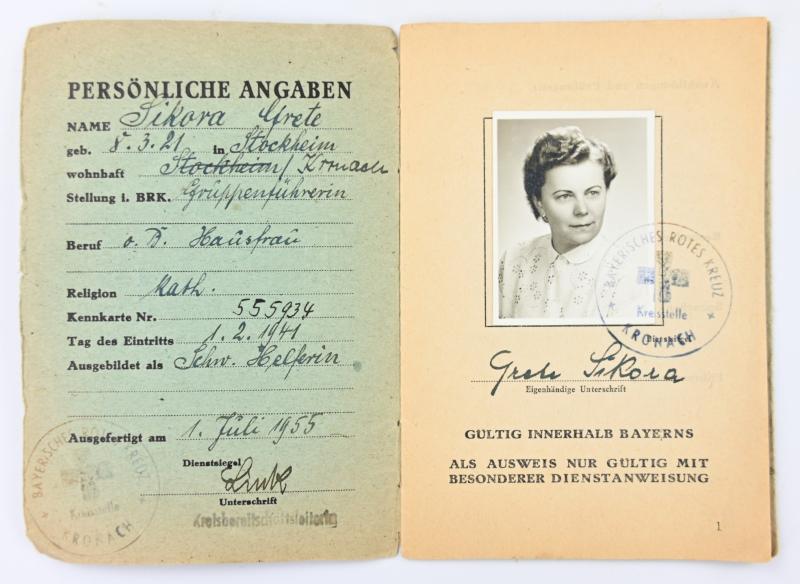 PERSÖNLICHE ANGABEN
NAME Sikora Grete
geb. 8.3.21 in Stockheim
wohnhaft Stockheim / Kronach
Stellung i. BRK. Gruppenführerin
Beruf o. B. Hausfrau
Religion Kath.
Kennkarte Nr. 555934
Tag des Eintritts 1.2.1941
Ausgebildet als Schw. Helferin
Ausgefertigt am 1. Juli 1955
Dienstsiegel
Unterschrift
Kreisbereitschaftsleiterin
BAYERISCHES ROTES KREUZ
Kreisstelle
KRONACH
BAYERISCHES ROTES KREUZ
Kreisstelle
KRONACH
Grete Sikora
Eigenhändige Unterschrift
GÜLTIG INNERHALB BAYERNS
ALS AUSWEIS NUR GÜLTIG MIT
BESONDERER DIENSTANWEISUNG
1